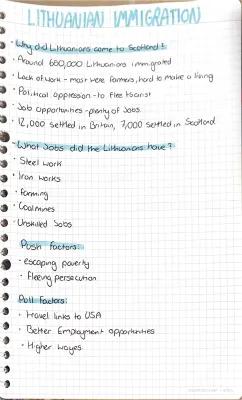 LITHUANIAN IMMIGRATION
Why did Lithuanians come to Scotland?
Around 660,000 Lithuanians immigrated
Lack of work - most were farmers, hard to make a living
Political oppression - to flee tsarist
Job opportunities - plenty of jobs
12,000 settled in Britain, 7,000 settled in Scotland
What Jobs did the Lithuanians have?
Steel work
Iron works
Farming
Coalmines
Unskilled Jobs
Push factors:
escaping poverty
Fleeing persecution
Pull Factors:
travel links to USA
Better Employment opportunities
Higher wages